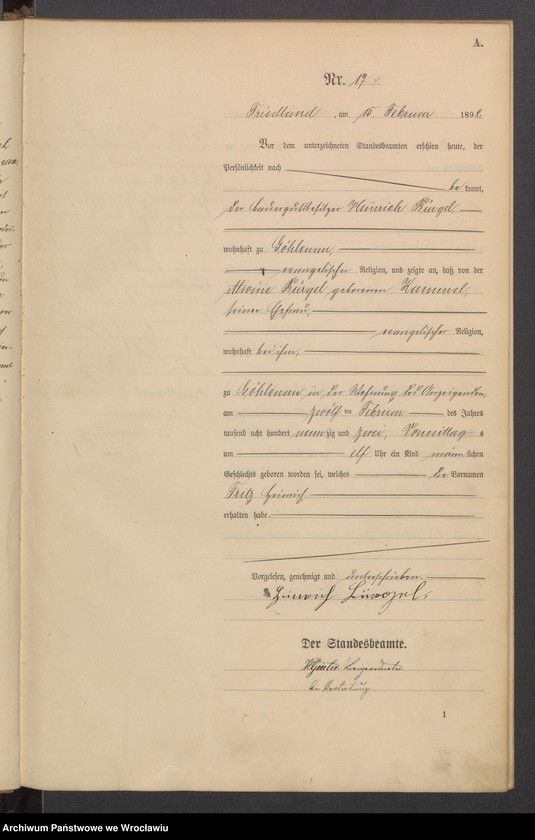 A.
Nr. 17
Friedland, am 15. Februar 1892.
Vor dem unterzeichneten Standesbeamten erschien heute, der
Persönlichkeit nach
be kannt,
der Bauergutsbesitzer Heinrich Kürgel,
wohnhaft zu Göhlenau,
evangelischer Religion, und zeigte an, daß von der
Alwine Kürgel geborenen Hammel,
seiner Ehefrau,
evangelischer Religion,
wohnhaft bei ihm,
zu Göhlenau in der Wohnung des Anzeigenden,
am zwölften Februar des Jahres
tausend acht hundert neunzig und zwei, Vormittag s
um elf Uhr ein Kind männlichen
Geschlechts geboren worden sei, welches die Vornamen
Fritz Heinrich
erhalten habe.
Vorgelesen, genehmigt und unterschrieben.
Heinrich
Der Standesbeamte.
In Vertretung
1
Archiwum Państwowe we Wrocławiu